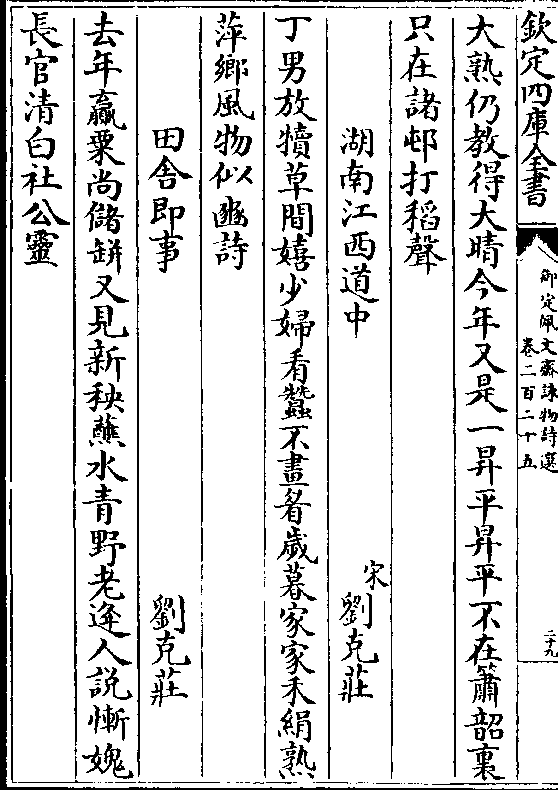 欽定四庫全書
御定佩文齋詠物詩選
卷二百二十五
二十九
大熟仍教得大晴今年又是一昇平昇平不在簫韶裏
只在諸邨打稻聲
湖南江西道中
宋劉克莊
丁男放犢草間嬉少婦看蠶不畫眉歲暮家家禾絹熟
萍鄉風物似豳詩
田舍即事
劉克莊
去年贏粟尚儲缾又見新秧蘸水青野老逢人說慚媿
長官清白社公靈